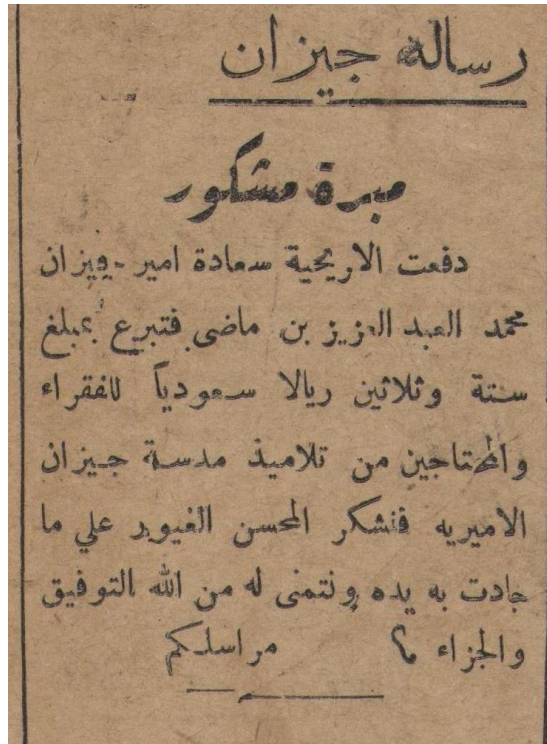 رسالة جيزان
مبرة مشكور
دفعت الاريحية سعادة امير جيزان
محمد العبد العزيز بن ماضي فتبرع بمبلغ
ستة وثلاثين ريالا سعودياً للفقراء
والمحتاجين من تلاميذ مدسة جيزان
الاميريه فنشكر المحسن الغيور علي ما
جادت به يده ونتمنى له من الله التوفيق
والجزاء مراسلكم